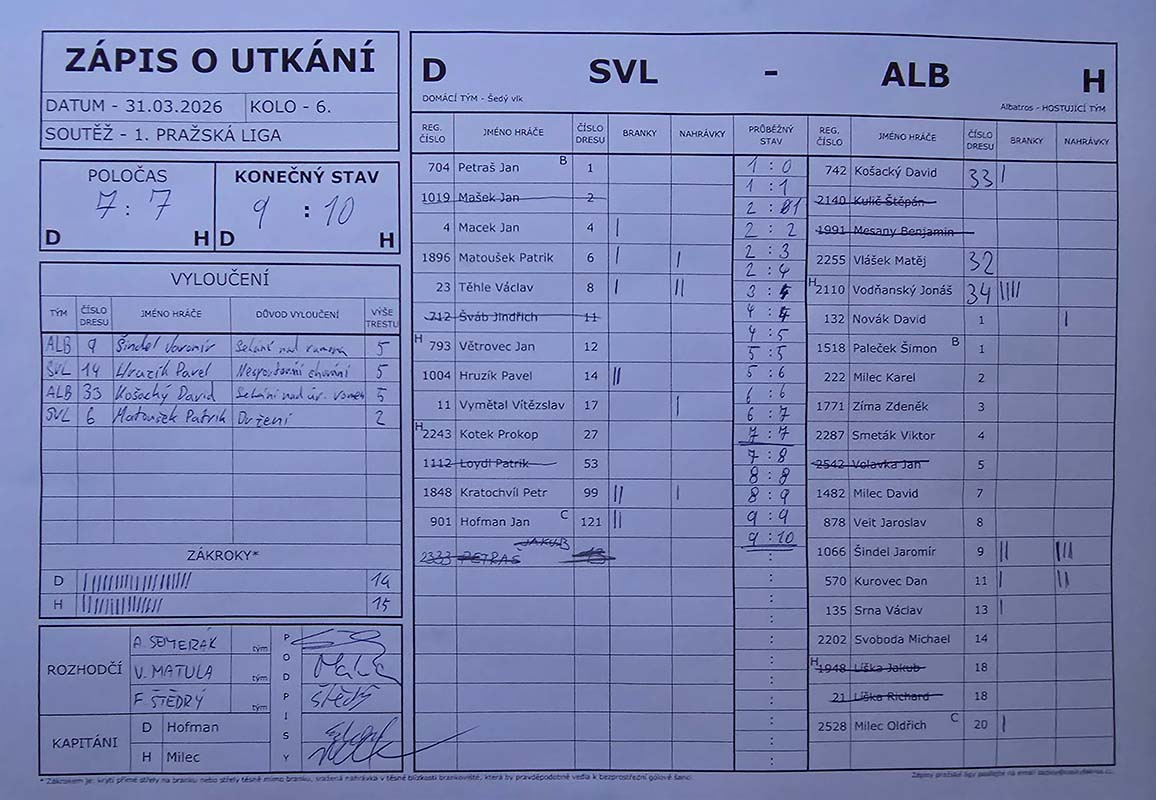 ZÁPIS O UTKÁNÍ
DATUM - 31.03.2026 KOLO - 6.
SOUTĚŽ - 1. PRAŽSKÁ LIGA
POLOČAS KONEČNÝ STAV
7 : 7 9 : 10
D H D H
VYLOUČENÍ
TÝM ČÍSLO DRESU JMÉNO HRÁČE DŮVOD VYLOUČENÍ VÝŠE TRESTU
ALB 9 Šindel Jaromír Sekání nad ramena 5
SVL 14 Hruzík Pavel Nesportovní chování 5
ALB 33 Košacký David Sekání nad úr. ramen 5
SVL 6 Matoušek Patrik Držení 2
ZÁKROKY*
D 19
H 15
ROZHODČÍ
A. SEMERÁK tým
V. MATULA tým
F. ŠTĚDRÝ tým
PODPISY
Štědrý
KAPITÁNI
D Hofman
H Milec
D SVL - ALB H
DOMÁCÍ TÝM - Šedý vlk Albatros - HOSTUJÍCÍ TÝM
REG. ČÍSLO JMÉNO HRÁČE ČÍSLO DRESU BRANKY NAHRÁVKY PRŮBĚŽNÝ STAV REG. ČÍSLO JMÉNO HRÁČE ČÍSLO DRESU BRANKY NAHRÁVKY
704 Petraš Jan B 1
1019 Mašek Jan 2
4 Macek Jan 4 |
1896 Matoušek Patrik 6 | |
23 Těhle Václav 8 | ||
712 Šváb Jindřich 11
H 793 Větrovec Jan 12
1004 Hruzík Pavel 14 ||
11 Vymětal Vítězslav 17 |
H 2243 Kotek Prokop 27
1112 Loydl Patrik 53
1848 Kratochvíl Petr 99 || |
901 Hofman Jan C 121 ||
2333 PETRAŠ JAKUB 13
1 : 0
1 : 1
2 : 1
2 : 2
2 : 3
2 : 4
3 : 4
4 : 4
4 : 5
5 : 5
5 : 6
6 : 6
6 : 7
7 : 7
7 : 8
8 : 8
8 : 9
9 : 9
9 : 10
742 Košacký David 33 |
2140 Kulič Štěpán
1991 Mesany Benjamin
2255 Vlášek Matěj 32
H 2110 Vodňanský Jonáš 34 ||||
132 Novák David 1 |
1518 Paleček Šimon B 1
222 Milec Karel 2
1771 Zíma Zdeněk 3
2287 Smeták Viktor 4
2542 Volavka Jan 5
1482 Milec David 7
878 Veit Jaroslav 8
1066 Šindel Jaromír 9 || |||
570 Kurovec Dan 11 | ||
135 Srna Václav 13 |
2202 Svoboda Michael 14
H 1948 Líška Jakub 18
21 Líška Richard 18
2528 Milec Oldřich C 20 |
* Zákrokem je: krytí přímé střely na branku nebo střely těsně mimo branku, sražená nahrávka v těsné blízkosti brankoviště, která by pravděpodobně vedla k bezprostřední gólové šanci.